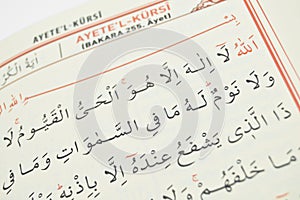 AYETE'L-KÜRSİ
AYETE'L-KÜRSİ
(BAKARA 255. Ayet)
اَللّٰهُ لَٓا اِلٰهَ اِلَّا هُوَ اَلْحَيُّ الْقَيُّومُ لَا
وَلَا نَوْمٌ لَهُ مَا فِي السَّمٰوَاتِ وَمَا فِي
ذَا الَّذ۪ي يَشْفَعُ عِنْدَهُٓ اِلَّا بِاِذْنِه۪
مَا خَلْفَهُمْ وَلَا